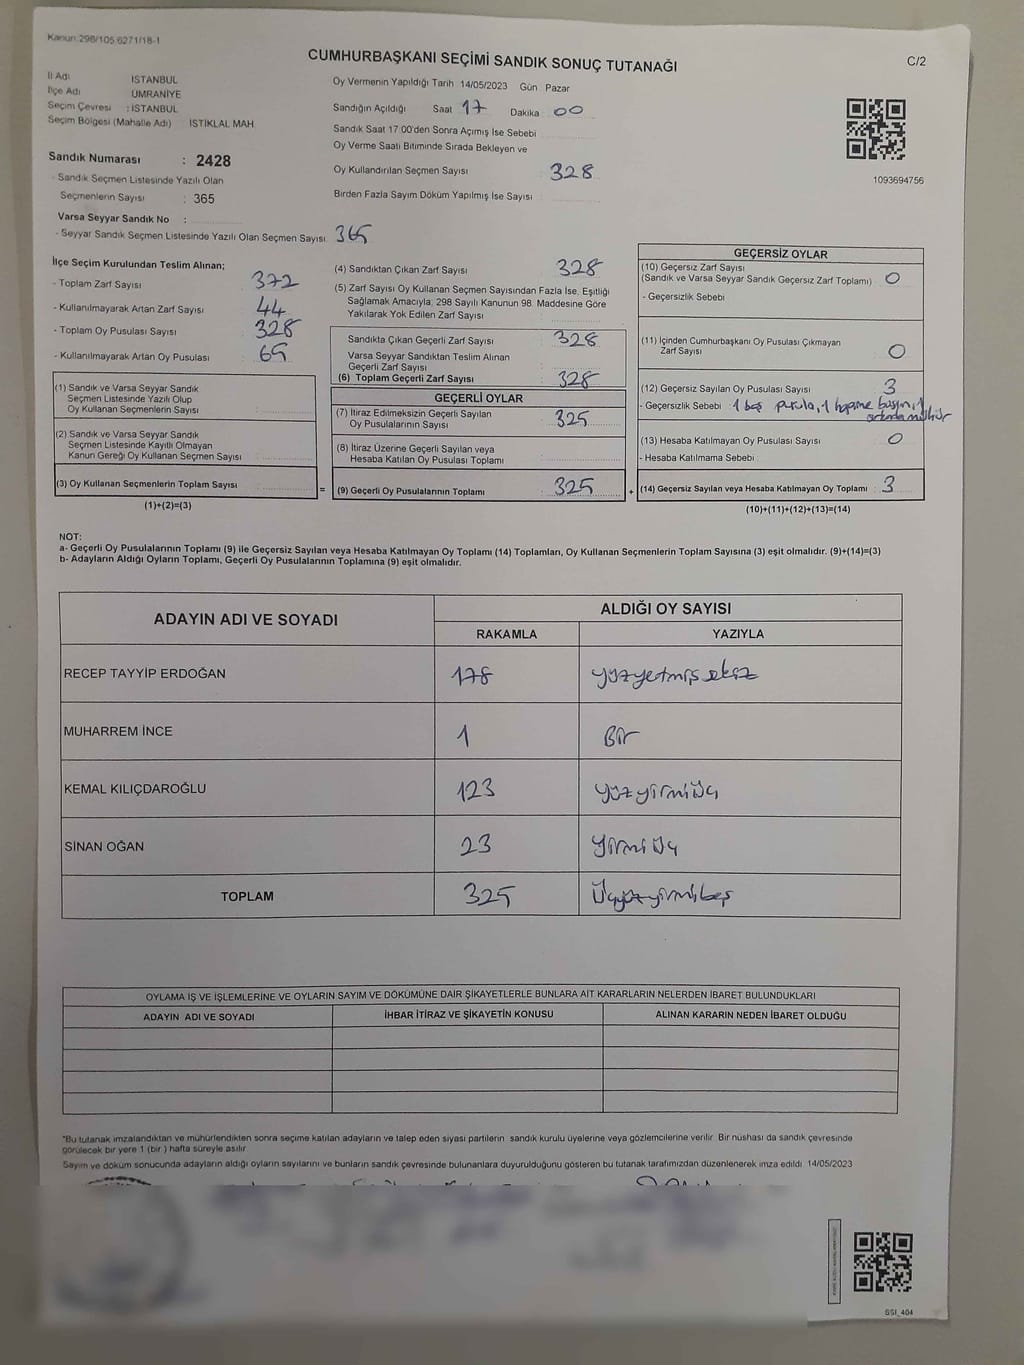 Kanun:298/105.6271/18-1
CUMHURBAŞKANI SEÇİMİ SANDIK SONUÇ TUTANAĞI
C/2
İl Adı : İSTANBUL
İlçe Adı : ÜMRANİYE
Seçim Çevresi : İSTANBUL
Seçim Bölgesi (Mahalle Adı) : İSTİKLAL MAH.
Oy Vermenin Yapıldığı Tarih 14/05/2023 Gün Pazar
Sandığın Açıldığı Saat 17 Dakika 00
Sandık Saat 17:00'den Sonra Açımış İse Sebebi
Oy Verme Saati Bitiminde Sırada Bekleyen ve
Oy Kullandırılan Seçmen Sayısı : 328
Birden Fazla Sayım Döküm Yapılmış İse Sayısı :
1093694756
Sandık Numarası : 2428
- Sandık Seçmen Listesinde Yazılı Olan
Seçmenlerin Sayısı : 365
Varsa Seyyar Sandık No :
- Seyyar Sandık Seçmen Listesinde Yazılı Olan Seçmen Sayısı 365
İlçe Seçim Kurulundan Teslim Alınan;
- Toplam Zarf Sayısı : 372
- Kullanılmayarak Artan Zarf Sayısı : 44
- Toplam Oy Pusulası Sayısı : 328
- Kullanılmayarak Artan Oy Pusulası :
(1) Sandık ve Varsa Seyyar Sandık
Seçmen Listesinde Yazılı Olup
Oy Kullanan Seçmenlerin Sayısı :
(2) Sandık ve Varsa Seyyar Sandık
Seçmen Listesinde Kayıtlı Olmayan
Kanun Gereği Oy Kullanan Seçmen Sayısı :
(3) Oy Kullanan Seçmenlerin Toplam Sayısı :
(1)+(2)=(3)
=
(4) Sandıktan Çıkan Zarf Sayısı : 328
(5) Zarf Sayısı Oy Kullanan Seçmen Sayısından Fazla İse, Eşitliği
Sağlamak Amacıyla, 298 Sayılı Kanunun 98. Maddesine Göre
Yakılarak Yok Edilen Zarf Sayısı :
Sandıkta Çıkan Geçerli Zarf Sayısı : 328
Varsa Seyyar Sandıktan Teslim Alınan
Geçerli Zarf Sayısı :
(6) Toplam Geçerli Zarf Sayısı : 328
GEÇERLİ OYLAR
(7) İtiraz Edilmeksizin Geçerli Sayılan
Oy Pusulalarının Sayısı : 325
(8) İtiraz Üzerine Geçerli Sayılan veya
Hesaba Katılan Oy Pusulası Toplamı :
(9) Geçerli Oy Pusulalarının Toplamı : 325
+
GEÇERSİZ OYLAR
(10) Geçersiz Zarf Sayısı
(Sandık ve Varsa Seyyar Sandık Geçersiz Zarf Toplamı) : 0
- Geçersizlik Sebebi :
(11) İçinden Cumhurbaşkanı Oy Pusulası Çıkmayan
Zarf Sayısı : 0
(12) Geçersiz Sayılan Oy Pusulası Sayısı : 3
- Geçersizlik Sebebi : 1 boş pusula, 1
(13) Hesaba Katılmayan Oy Pusulası Sayısı : 0
- Hesaba Katılmama Sebebi :
(14) Geçersiz Sayılan veya Hesaba Katılmayan Oy Toplamı : 3
(10)+(11)+(12)+(13)=(14)
NOT:
a- Geçerli Oy Pusulalarının Toplamı (9) ile Geçersiz Sayılan veya Hesaba Katılmayan Oy Toplamı (14) Toplamları, Oy Kullanan Seçmenlerin Toplam Sayısına (3) eşit olmalıdır. (9)+(14)=(3)
b- Adayların Aldığı Oyların Toplamı, Geçerli Oy Pusulalarının Toplamına (9) eşit olmalıdır.
ADAYIN ADI VE SOYADI
ALDIĞI OY SAYISI
RAKAMLA YAZIYLA
RECEP TAYYİP ERDOĞAN 178 yüzyetmişsekiz
MUHARREM İNCE 1 Bir
KEMAL KILIÇDAROĞLU 123 yüzyirmiüç
SİNAN OĞAN 23 yirmiüç
TOPLAM 325 Üçyüzyirmibeş
OYLAMA İŞ VE İŞLEMLERİNE VE OYLARIN SAYIM VE DÖKÜMÜNE DAİR ŞİKAYETLERLE BUNLARA AİT KARARLARIN NELERDEN İBARET BULUNDUKLARI
ADAYIN ADI VE SOYADI İHBAR İTİRAZ VE ŞİKAYETİN KONUSU ALINAN KARARIN NEDEN İBARET OLDUĞU
*Bu tutanak imzalandıktan ve mühürlendikten sonra seçime katılan adayların ve talep eden siyasi partilerin sandık kurulu üyelerine veya gözlemcilerine verilir. Bir nüshası da sandık çevresinde
görülecek bir yere 1 (bir ) hafta süreyle asılır
Sayım ve döküm sonucunda adayların aldığı oyların sayılarını ve bunların sandık çevresinde bulunanlara duyurulduğunu gösteren bu tutanak tarafımızdan düzenlenerek imza edildi. 14/05/2023
SSI_404